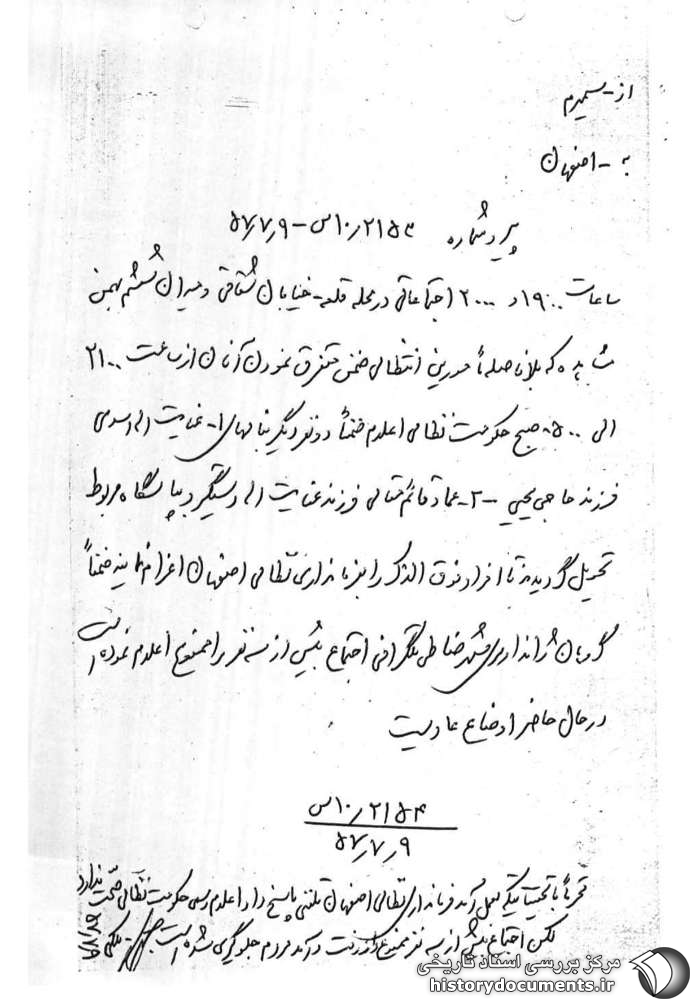 از - سمیرم
به - اصفهان
پیرو شماره ۲۱۵۴/۱۰س - ۵۷/۷/۹
ساعات ۱۹۰۰ و ۲۰۰۰ اجتماعاتی در محله قلعه - خیابان و میدان ششم بهمن
مشاهده که بلافاصله مأمورین انتظامی ضمن متفرق نمودن آنان از ساعت ۲۱۰۰
الی ۰۵۰۰ صبح حکومت نظامی اعلام ضمناً دو نفر دیگر بنامهای ۱- عنایت اله اسدسی
فرزند حاجی یحیی - ۲- فرزند عنایت اله دستگیر و بپاسگاه مربوط
تحویل گردیدند تا افراد فوق الذکر را بفرمانداری نظامی اصفهان اعزام نمایند ضمناً
گروهان ژاندارمری طی تلگرافی اجتماع بیش از سه نفر را ممنوع اعلام نموده است
در حال حاضر اوضاع عادیست
۲۱۵۴/۱۰س
۵۷/۷/۹
با بعمل آمده فرمانداری نظامی اصفهان تلفنی پاسخ داد اعلام رسمی حکومت نظامی صحت ندارد
لکن اجتماع بیش از سه نفر ممنوع و رفت و آمد مردم جلوگیری شده است
مرکز بررسی اسناد تاریخی
historydocuments.ir